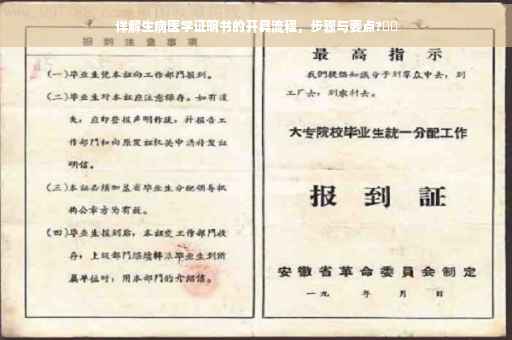 详解生病医学证明书的开具流程，步骤与要点?
报到注意事项
(一)毕业生凭本证向工作部门报到。
(二)毕业生对本证应注意保存。如有遗
失，应即登报声明作废，并报告工
作部门和向原发证机关申请补发证
明信。
(三)本证必须加盖省毕业生分配领导机
构公章方为有效。
(四)毕业生报到后，本证交工作部门收
存；上级部门继续转派毕业生到所
属单位时，用本部门的介绍信。
最高指示
我们提倡知识分子到群众中去，到
工厂去，到农村去。
大专院校毕业生统一分配工作
报到证
安徽省革命委员会制定
一九 年 月 日